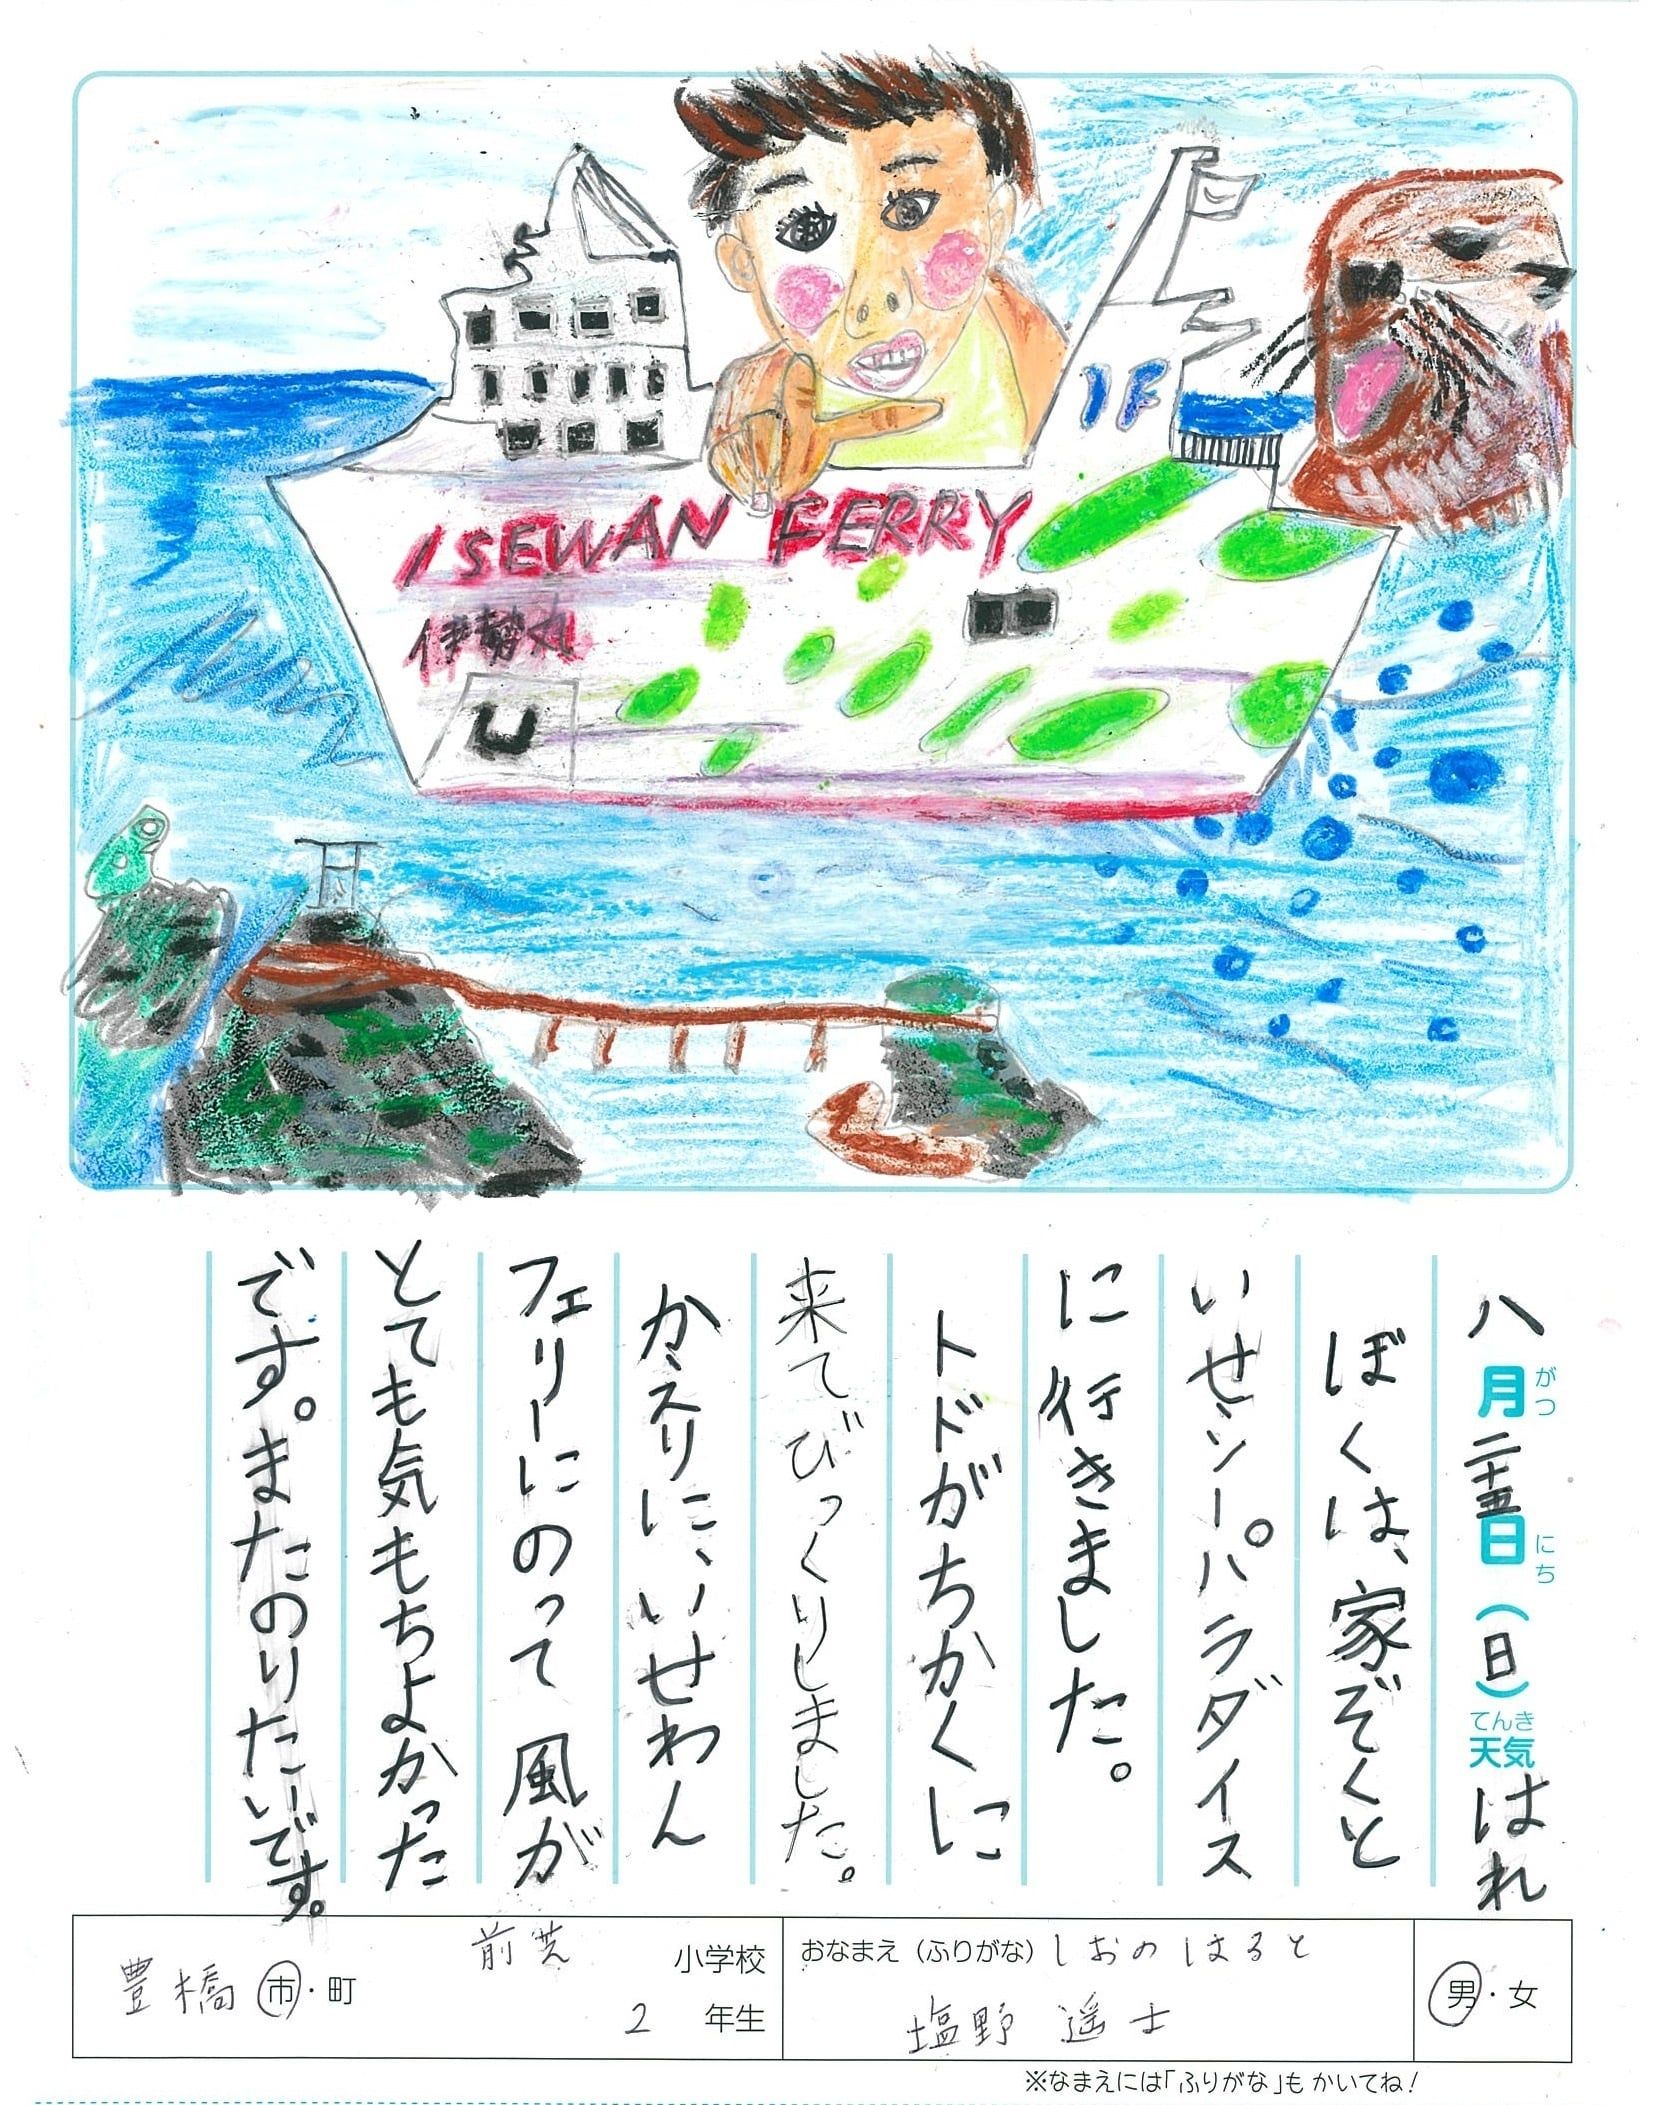 ISEWAN FERRY
伊勢丸
IF
八月二十五日(日)天気はれ
がつ
にち
てんき
ぼくは、家ぞくと
いせシーパラダイス
に行きました。
トドがちかくに
来てびっくりしました。
かえりに、いせわん
フェリーにのって風が
とても気もちよかった
です。またのりたいです。
豊橋市・町
前芝小学校
2年生
おなまえ(ふりがな)しおのはると
塩野遥士
男・女
※なまえには「ふりがな」もかいてね!